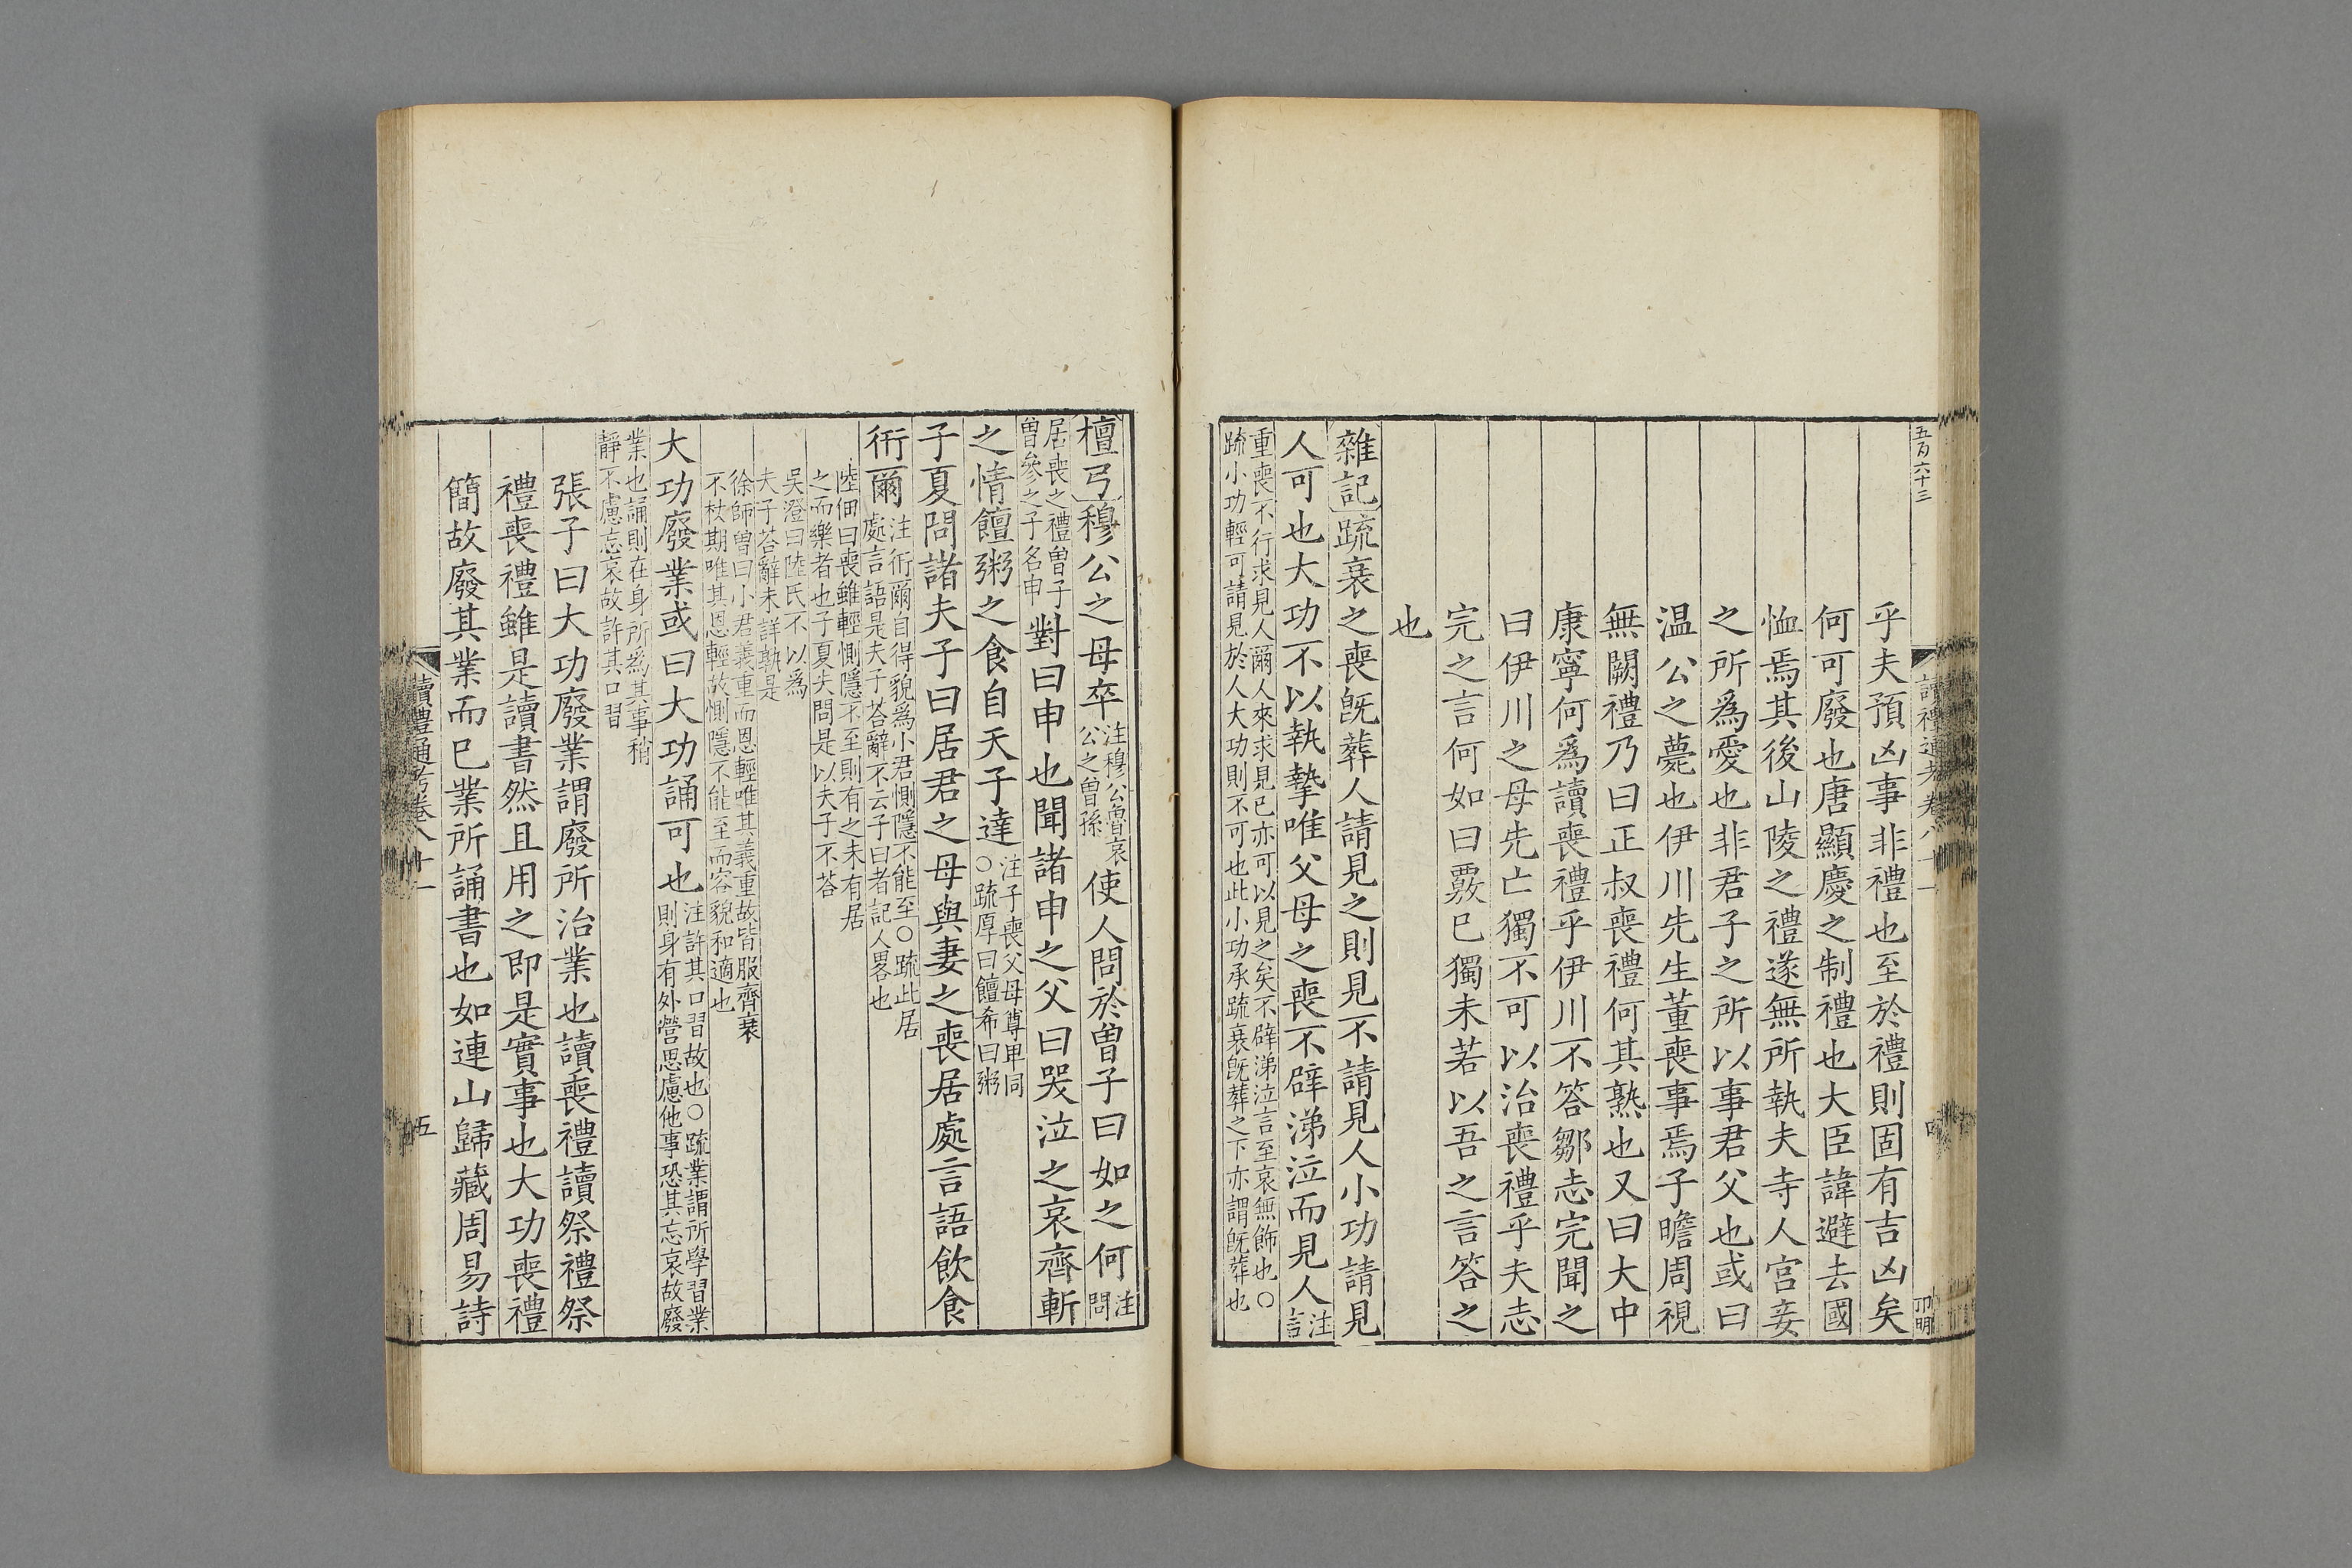 五百六十三
讀禮通考卷八十一
四
乎夫預凶事非禮也至於禮則固有吉凶矣
何可廢也唐顯慶之制禮也大臣諱避去國
恤焉其後山陵之禮遂無所執夫寺人宮妾
之所爲愛也非君子之所以事君父也或曰
温公之薨也伊川先生董喪事焉子瞻周視
無闕禮乃曰正叔喪禮何其熟也又曰大中
康寧何爲讀喪禮乎伊川不答鄒志完聞之
曰伊川之母先亡獨不可以治喪禮乎夫志
完之言何如曰覈巳獨未若以吾之言答之
也
雜記疏衰之喪旣葬人請見之則見不請見人小功請見
人可也大功不以執摯唯父母之喪不辟涕泣而見人注言
重喪不行求見人爾人來求見已亦可以見之矣不辟涕泣言至哀無飾也○
疏小功輕可請見於人大功則不可也此小功承疏衰旣葬之下亦謂旣葬也
檀弓穆公之母卒注穆公魯哀公之曾孫使人問於曾子曰如之何注問
居喪之禮曾子曾參之子名申對曰申也聞諸申之父曰哭泣之哀齊斬
之情饘粥之食自天子達注子喪父母尊卑同○疏厚曰饘希曰粥
子夏問諸夫子曰居君之母與妻之喪居處言語飲食
衎爾注衎爾自得貌爲小君惻隱不能至○疏此居處言語是夫子荅辭不云子曰者記人畧也
陸佃曰喪雖輕惻隱不至則有之未有居
之而樂者也子夏失問是以夫子不荅
吳澄曰陸氏不以爲
夫子荅辭未詳孰是
徐師曾曰小君義重而恩輕唯其義重故皆服齊衰
不杖期唯其恩輕故惻隱不能至而容貌和適也
大功廢業或曰大功誦可也注許其口習故也○疏業謂所學習業則身有外營思慮他事恐其忘哀故廢
業也誦則在身所爲其事稍
靜不慮忘哀故許其口習
張子曰大功廢業謂廢所治業也讀喪禮讀祭禮祭
禮喪禮雖是讀書然且用之即是實事也大功喪禮
簡故廢其業而巳業所誦書也如連山歸藏周易詩
讀禮通考卷八十一
五